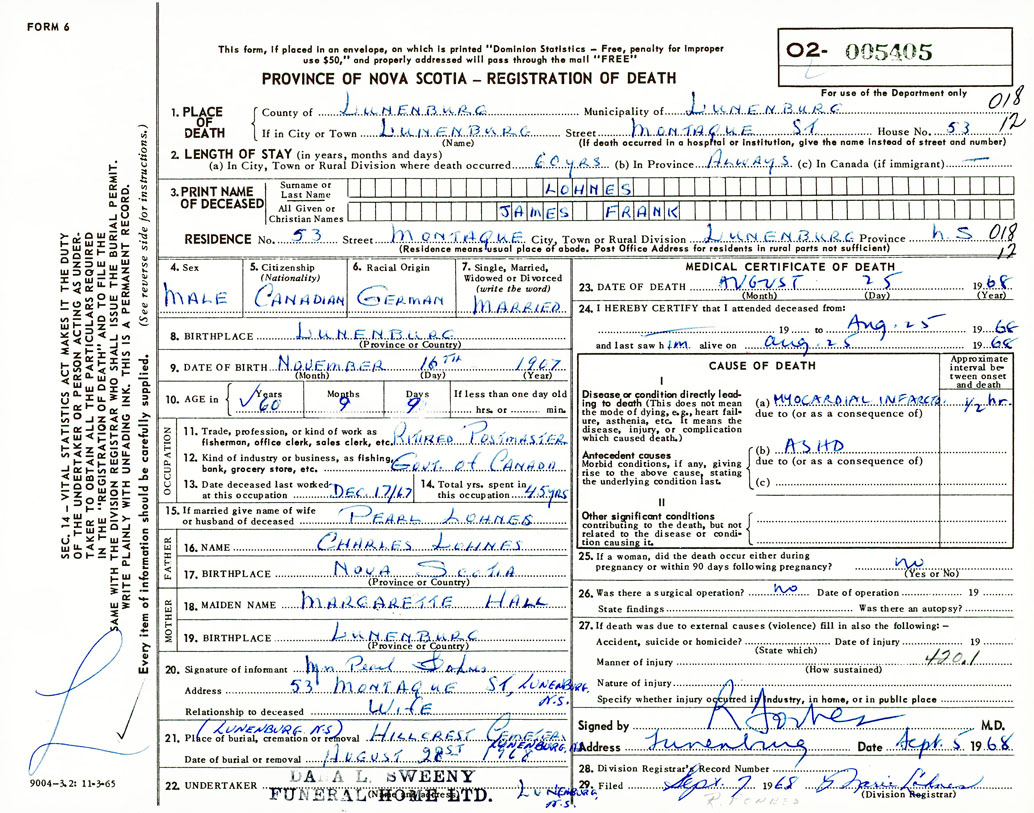 FORM 6
This form, if placed in an envelope, on which is printed "Dominion Statistics – Free, penalty for improper
use $50," and properly addressed will pass through the mail "FREE"
PROVINCE OF NOVA SCOTIA – REGISTRATION OF DEATH
O2- 005405
For use of the Department only
018
12
1. PLACE OF DEATH
County of LUNENBURG Municipality of LUNENBURG
If in City or Town LUNENBURG Street MONTAQUE ST House No. 53
(Name) (If death occurred in a hospital or institution, give the name instead of street and number)
2. LENGTH OF STAY (in years, months and days)
(a) In City, Town or Rural Division where death occurred 60 YRS (b) In Province ALWAYS (c) In Canada (if immigrant) —
3. PRINT NAME OF DECEASED
Surname or Last Name LOHNES
All Given or Christian Names JAMES FRANK
RESIDENCE No. 53 Street MONTAQUE City, Town or Rural Division LUNENBURG Province N.S
018
12
(Residence means usual place of abode. Post Office Address for residents in rural parts not sufficient)
4. Sex
MALE
5. Citizenship (Nationality)
CANADIAN
6. Racial Origin
GERMAN
7. Single, Married, Widowed or Divorced (write the word)
MARRIED
8. BIRTHPLACE LUNENBURG
(Province or Country)
9. DATE OF BIRTH NOVEMBER 16TH 1907
(Month) (Day) (Year)
10. AGE in Years 60 Months 9 Days 9 If less than one day old
hrs. or min.
OCCUPATION
11. Trade, profession, or kind of work as
fisherman, office clerk, sales clerk, etc. RITIRED POSTMASTER
12. Kind of industry or business, as fishing,
bank, grocery store, etc. GOVT. OF CANADA
13. Date deceased last worked
at this occupation DEC. 17/67
14. Total yrs. spent in
this occupation 45 YRS
15. If married give name of wife
or husband of deceased PEARL LOHNES
FATHER
16. NAME CHARLES LOHNES
17. BIRTHPLACE NOVA SCOTIA
(Province or Country)
MOTHER
18. MAIDEN NAME MARGARETTE HALL
19. BIRTHPLACE LUNENBURG
(Province or Country)
20. Signature of informant Mrs Pearl Lohnes
Address 53 MONTAQUE ST, LUNENBURG, N.S.
Relationship to deceased WIFE
(LUNENBURG N.S)
21. Place of burial, cremation or removal HILLCREST CEMETERY
LUNENBURG, N.S
Date of burial or removal AUGUST 28ST 1968
22. UNDERTAKER DANA L. SWEENY
FUNERAL HOME LTD.
(Name and address)
LUNENBURG, N.S.
MEDICAL CERTIFICATE OF DEATH
23. DATE OF DEATH AUGUST 25 1968
(Month) (Day) (Year)
24. I HEREBY CERTIFY that I attended deceased from:
19 to Aug. 25 1968
and last saw him alive on Aug. 25 1968
CAUSE OF DEATH
Approximate interval between onset and death
I
Disease or condition directly leading to death (This does not mean the mode of dying, e.g., heart failure, asthenia, etc. It means the disease, injury, or complication which caused death.)
(a) MYOCARDIAL INFARCT. 1/2 hr.
due to (or as a consequence of)
Antecedent causes
Morbid conditions, if any, giving rise to the above cause, stating the underlying condition last.
(b) ASHD
due to (or as a consequence of)
(c)
II
Other significant conditions
contributing to the death, but not related to the disease or condition causing it.
25. If a woman, did the death occur either during
pregnancy or within 90 days following pregnancy? no
(Yes or No)
26. Was there a surgical operation? no Date of operation 19
State findings Was there an autopsy?
27. If death was due to external causes (violence) fill in also the following: –
Accident, suicide or homicide? Date of injury 19
(State which)
Manner of injury 420.1
(How sustained)
Nature of injury
Specify whether injury occurred in Industry, in home, or in public place
Signed by R Forbes M.D.
Address Lunenburg Date Sept. 5 1968
28. Division Registrar's Record Number
29. Filed Sept. 7 1968
(Division Registrar)
R. FORBES
SEC. 14 – VITAL STATISTICS ACT MAKES IT THE DUTY
OF THE UNDERTAKER OR PERSON ACTING AS UNDER-
TAKER TO OBTAIN ALL THE PARTICULARS REQUIRED
IN THE "REGISTRATION OF DEATH" AND TO FILE THE
SAME WITH THE DIVISION REGISTRAR WHO SHALL ISSUE THE BURIAL PERMIT.
WRITE PLAINLY WITH UNFADING INK. THIS IS A PERMANENT RECORD.
Every item of information should be carefully supplied. (See reverse side for instructions.)
9004–3.2: 11-3-65